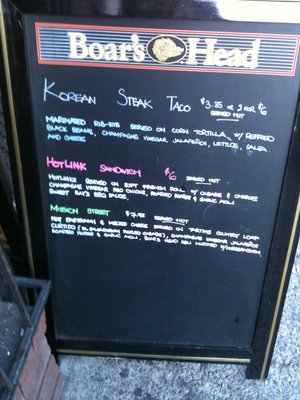 Boar's Head
KOREAN STEAK TACO $3.85 OR 2 FOR $6
SERVED HOT
MARINATED RIB-EYE SERVED ON CORN TORTILLA, W/ REFRIED
BLACK BEANS, CHAMPAGNE VINEGAR JALAPEÑOS, LETTUCE, SALSA,
AND CHEESE
HOTLINK SANDWICH $6 SERVED HOT
HOTLINKS SERVED ON SOFT FRENCH ROLL W/ CABBAGE & CARROTS
CHAMPAGNE VINEGAR RED ONIONS, ROASTED PEPPER & GARLIC AIOLI
SWEET RAY'S BBQ SAUCE
MISSION STREET $7.95 SERVED HOT
HOT PASTRAMI & MELTED CHEESE SERVED ON "DARTINE COUNTRY" LOAF
CURTIDO (EL SALVADORIAN PICKLED CABBAGE), CHAMPAGNE VINEGAR JALAPEÑOS
ROASTED PEPPER & GARLIC AIOLI, BOAR'S HEAD DELI MUSTARD W/HORSERADISH